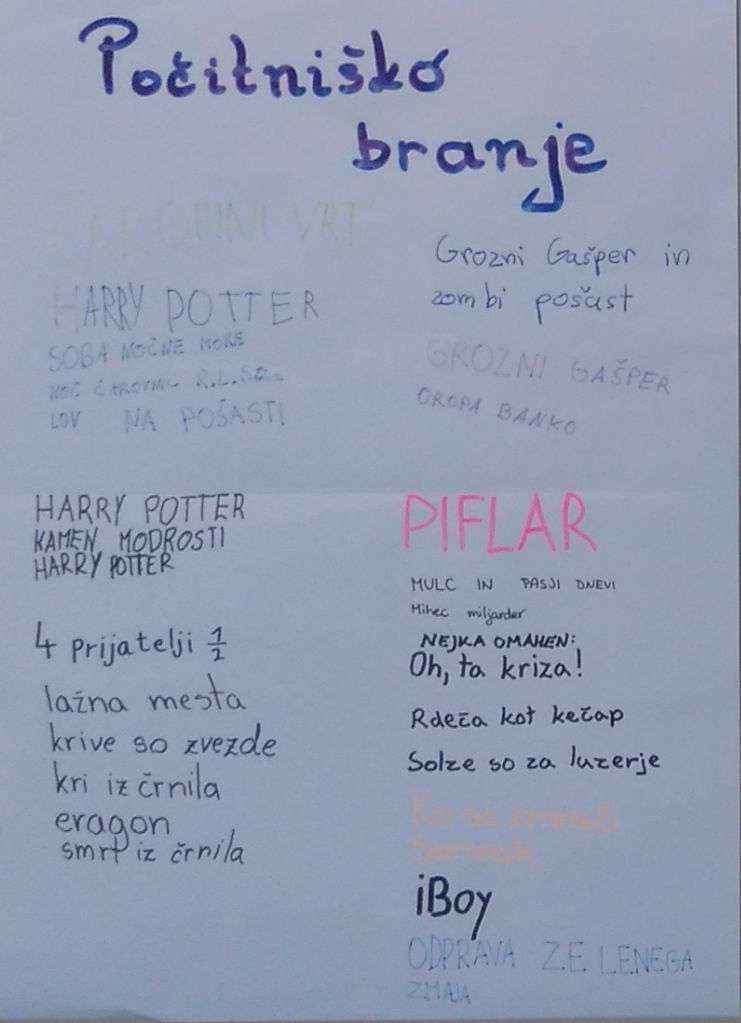 Počitniško
branje
ČAROBNI VRT
HARRY POTTER
SOBA NOČNE MORE
NOČ ČAROVNIC R.L.
LOV NA POŠASTI
HARRY POTTER
KAMEN MODROSTI
HARRY POTTER
4 prijatelji 1/2
lažna mesta
krive so zvezde
kri iz črnila
eragon
smrt iz črnila
Grozni Gašper in
zombi pošast
GROZNI GAŠPER
OROPA BANKO
PIFLAR
MULC IN PASJI DNEVI
Mihec miljarder
NEJKA OMAHEN:
Oh, ta kriza!
Rdeča kot kečap
Solze so za luzerje
Ko se zmrači
Somrak
iBoy
ODPRAVA ZELENEGA
ZMAJA